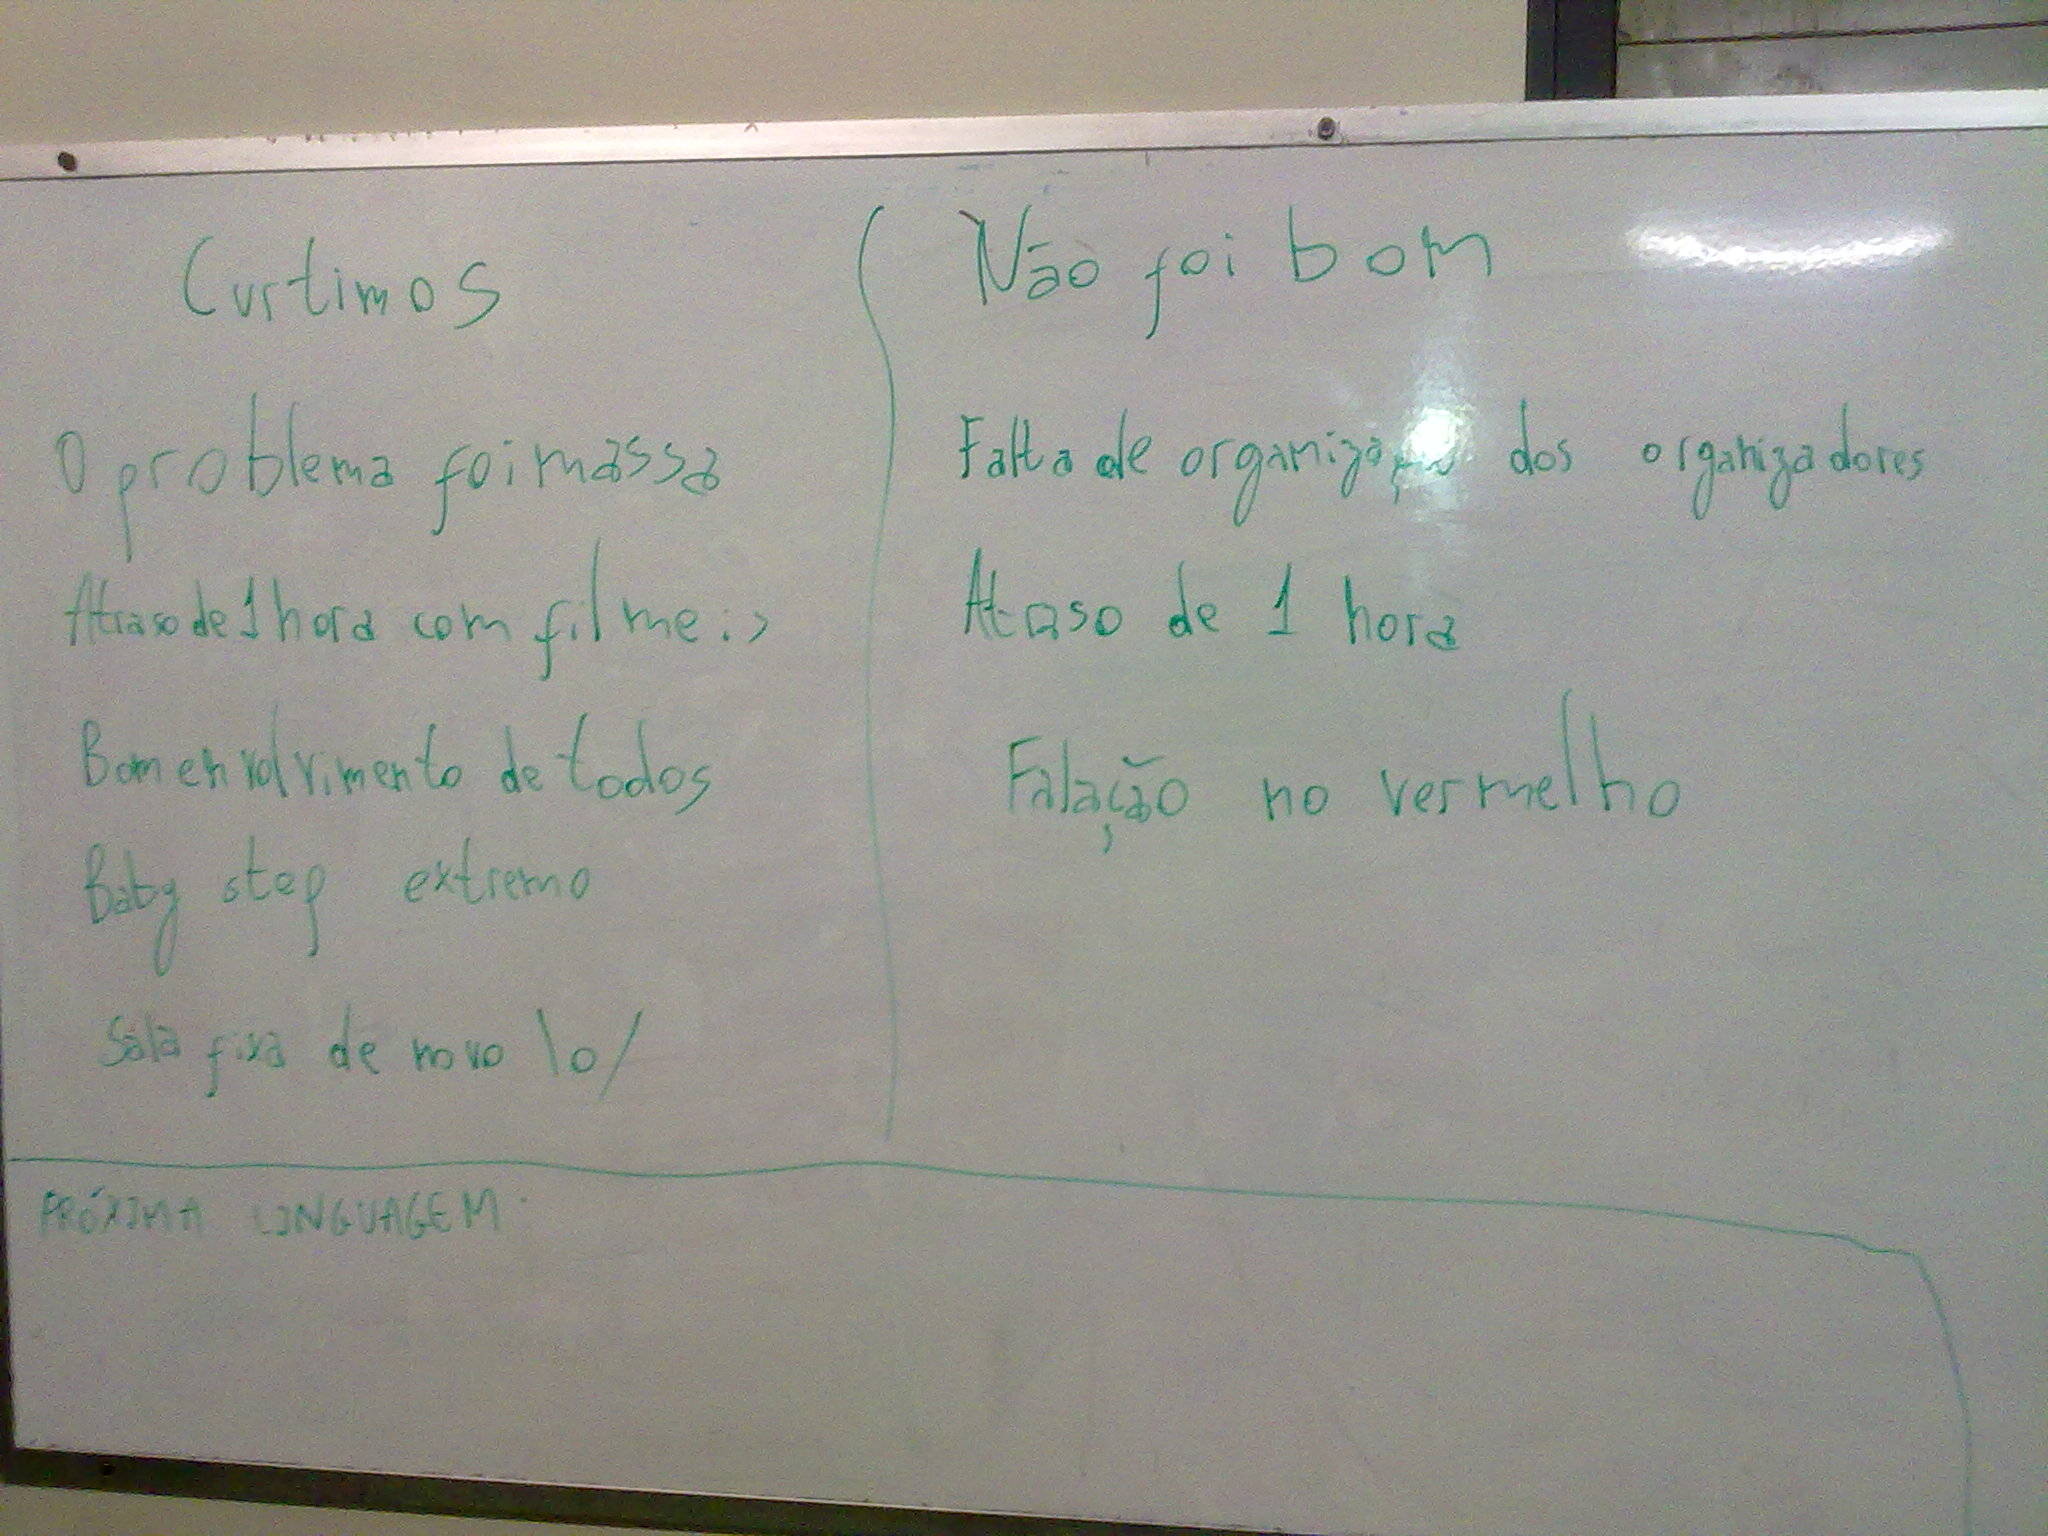 Curtimos
O problema foi massa
Atraso de 1 hora com filme :>
Bom envolvimento de todos
Baby step extremo
Sala fixa de novo \o/
Não foi bom
Falta de organização dos organizadores
Atraso de 1 hora
Falação no vermelho
PRÓXIMA LINGUAGEM: